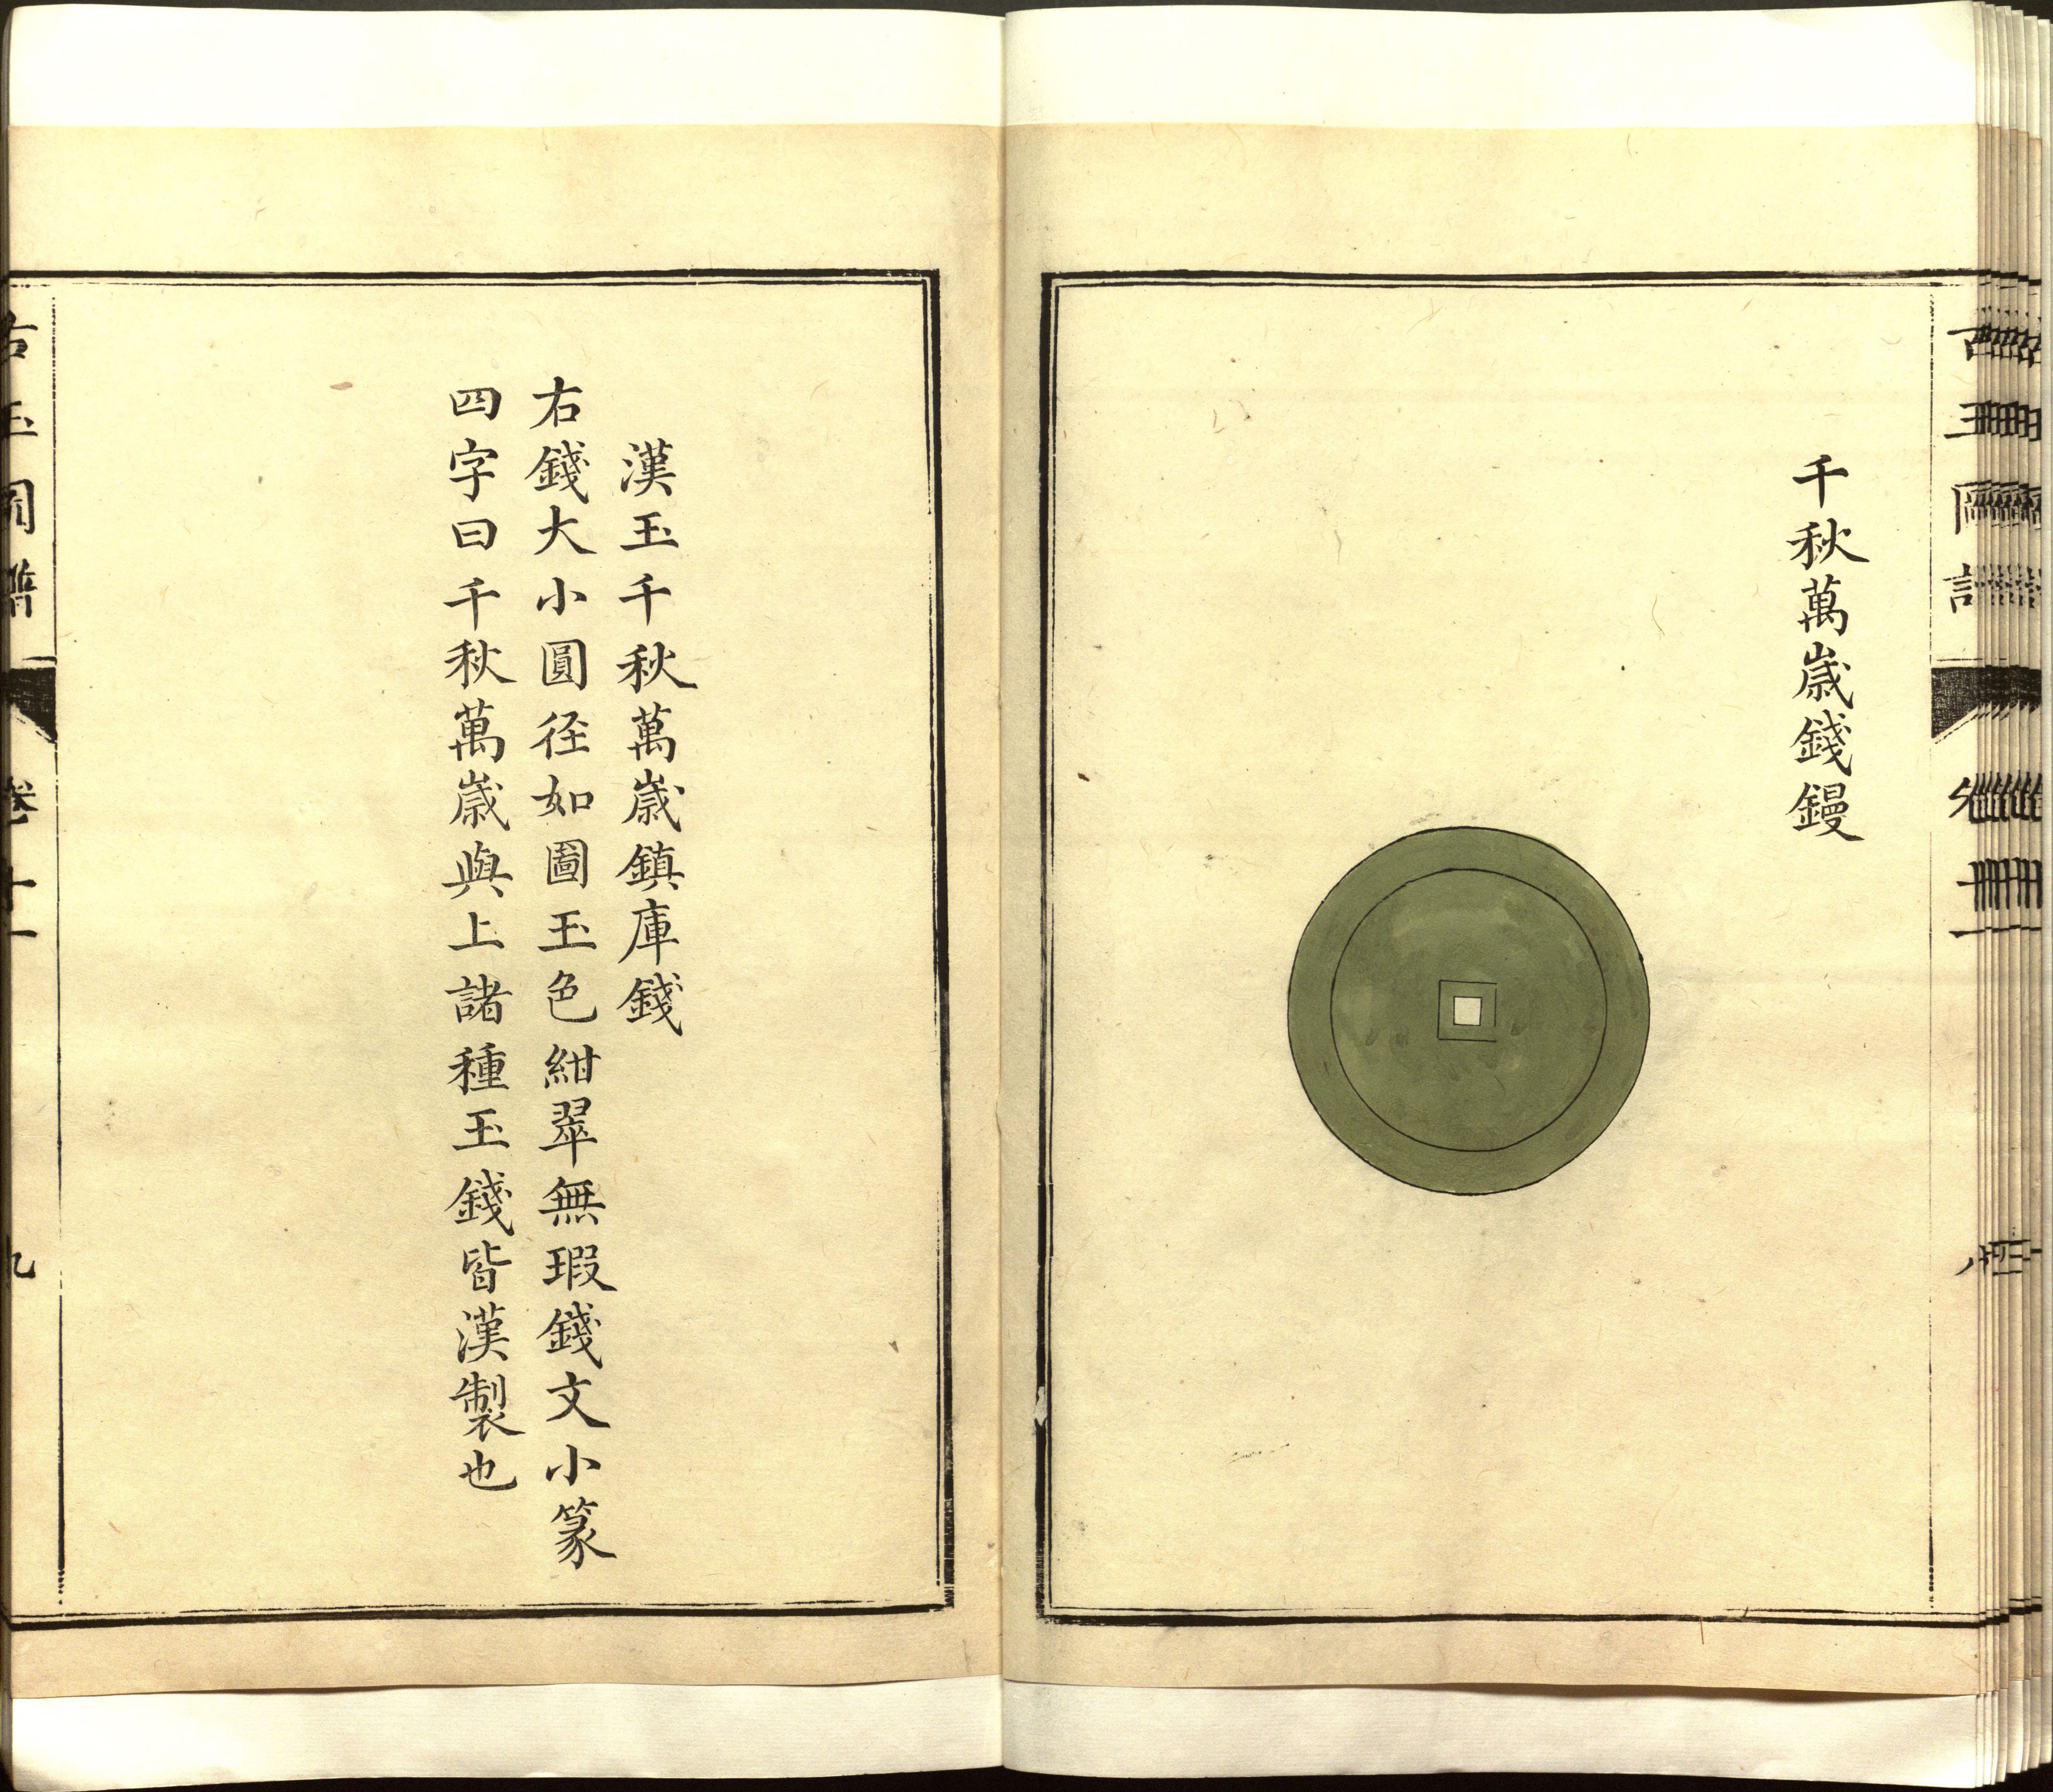 千秋萬歳錢鏝
漢玉千秋萬歳鎮庫錢
右錢大小圓徑如圖玉色紺翠無瑕錢文小篆
四字曰千秋萬歳與上諸種玉錢皆漢製也
古玉圖譜 卷十一 九